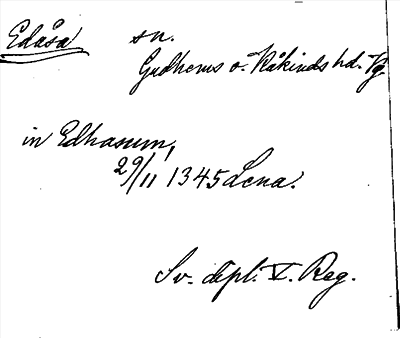 Edåsa sn.
Gudhems o. Kåkinds hd. Vg
in Edhasum,
29/11 1345 Lena.
Sv. dipl. V. Reg.